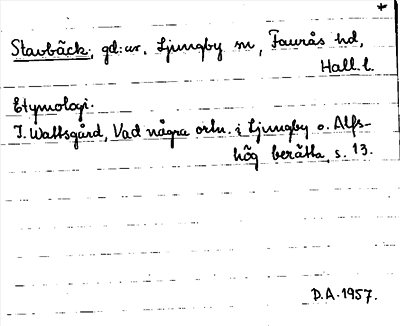 *
Stavbäck, gd:ar, Ljungby sn, Faurås hd,
Hall. l.
Etymologi:
J. Wattsgård, Vad några ortn. i Ljungby o. Alfs-
hög berätta, s. 13.
D.A. 1957.